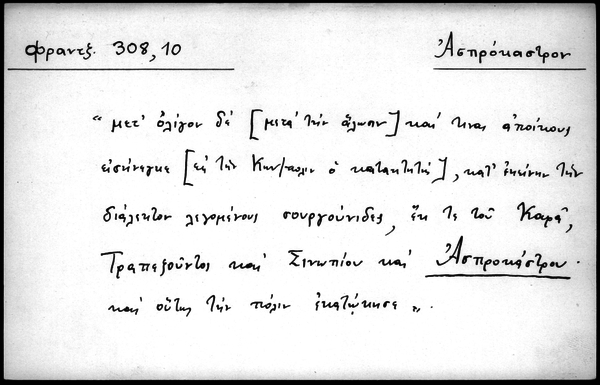 Φραντζ. 308,10
Ἀσπρόκαστρον
“ μετ' ὀλίγον δέ [μετά τήν ἅλωσιν] καί τινας ἀποίκους
εἰσήνεγκε [εἰς τήν Κων/πολιν ὁ κατακτητής], κατ' ἐκείνην τήν
διάλεκτον λεγομένους σουργούνιδες, ἔκ τε τοῦ Καφᾶ,
Τραπεζοῦντος καί Σινωπίου καί Ἀσπροκάστρου ·
καί οὕτως τήν πόλιν ἐκατῴκησε „ .